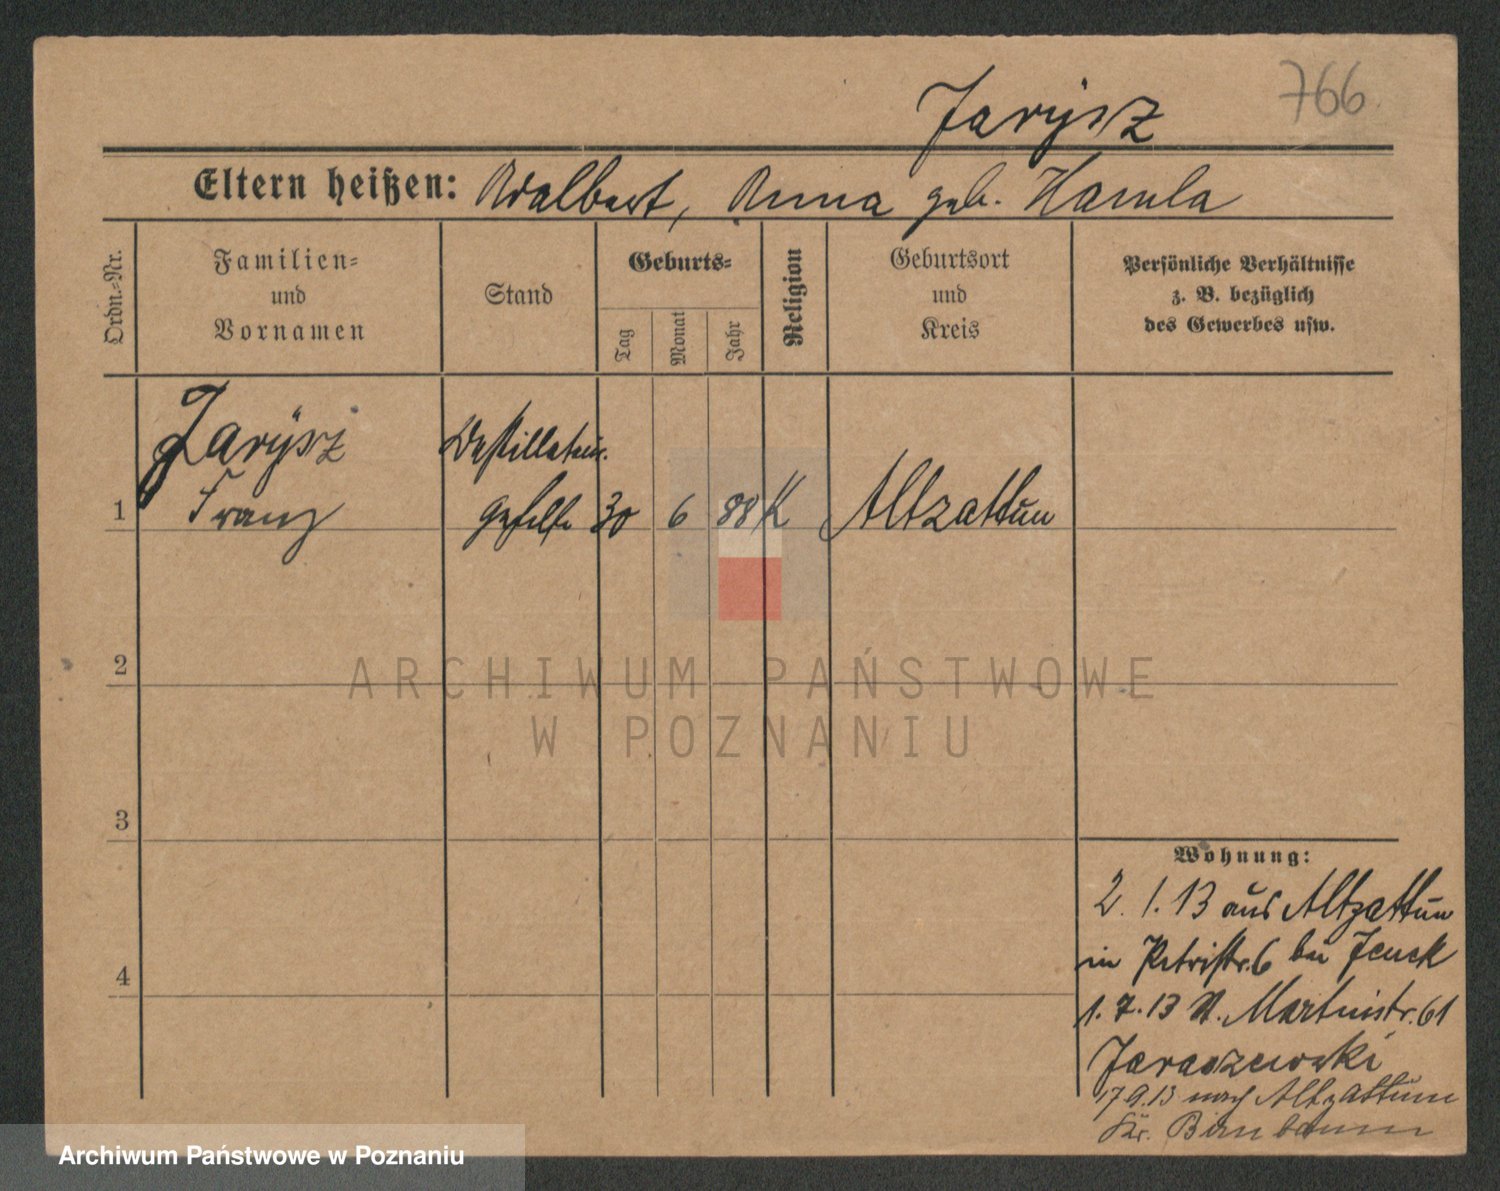 766.
Jarÿsz
Eltern heißen: Adalbert, Anna geb. Hamla
Ordn.-Nr.
Familien-
und
Vornamen
Stand
Geburts-
Tag
Monat
Jahr
Religion
Geburtsort
und
Kreis
Persönliche Verhältnisse
z. B. bezüglich
des Gewerbes usw.
Jarÿsz Destillateur.
1 Franz geselle 30 6 88 K Altzattum
2
ARCHIWUM PAŃSTWOWE
W POZNANIU
3
Wohnung:
2. 1. 13 aus Altzattum
in Petristr. 6 bei Jenek
4
1. 7. 13 St. Martinstr. 61
Jaraszewski
17.9.13 nach Altzattum
Kr. Birnbaum
Archiwum Państwowe w Poznaniu